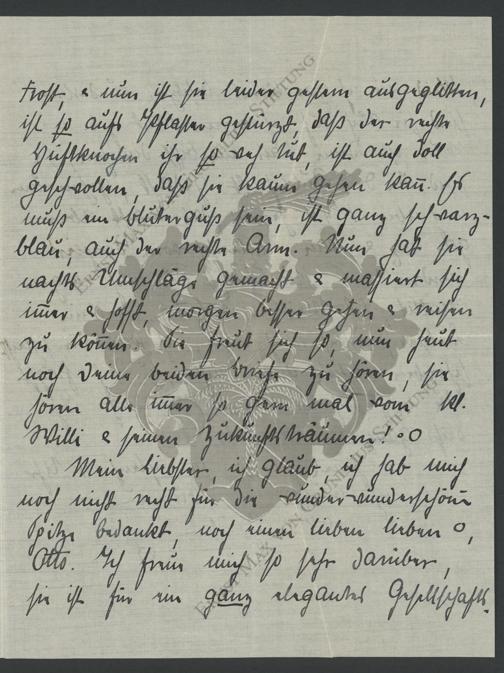 Frost, & nun ist sie leider gestern ausgeglitten,
ist so aufs Pflaster gestürzt, daß der rechte
Hüftknochen ihr so weh tut, ist auch doll
geschwollen, daß sie kaum gehen kan̅. Es
muß ein Bluterguß sein, ist ganz schwarz-
blau, auch der rechte Arm. Nun hat sie
nachts Umschläge gemacht & massiert sich
im̅er & hofft, morgen besser gehen & reisen
zu kön̅en. Sie freut sich so, nun heut
noch Deine beiden Briefe zu hören, sie
hören alle im̅er so gern mal vom kl.
Willi & seinen Zukunftsträumen!
Mein Liebster, ich glaub ich hab mich
noch nicht recht für die wunder-wunderschöne
Spitze bedankt, noch einen lieben lieben o,
Otto. Ich freue mich so sehr darüber,
sie ist für ein ganz elegantes Gesellschafts-